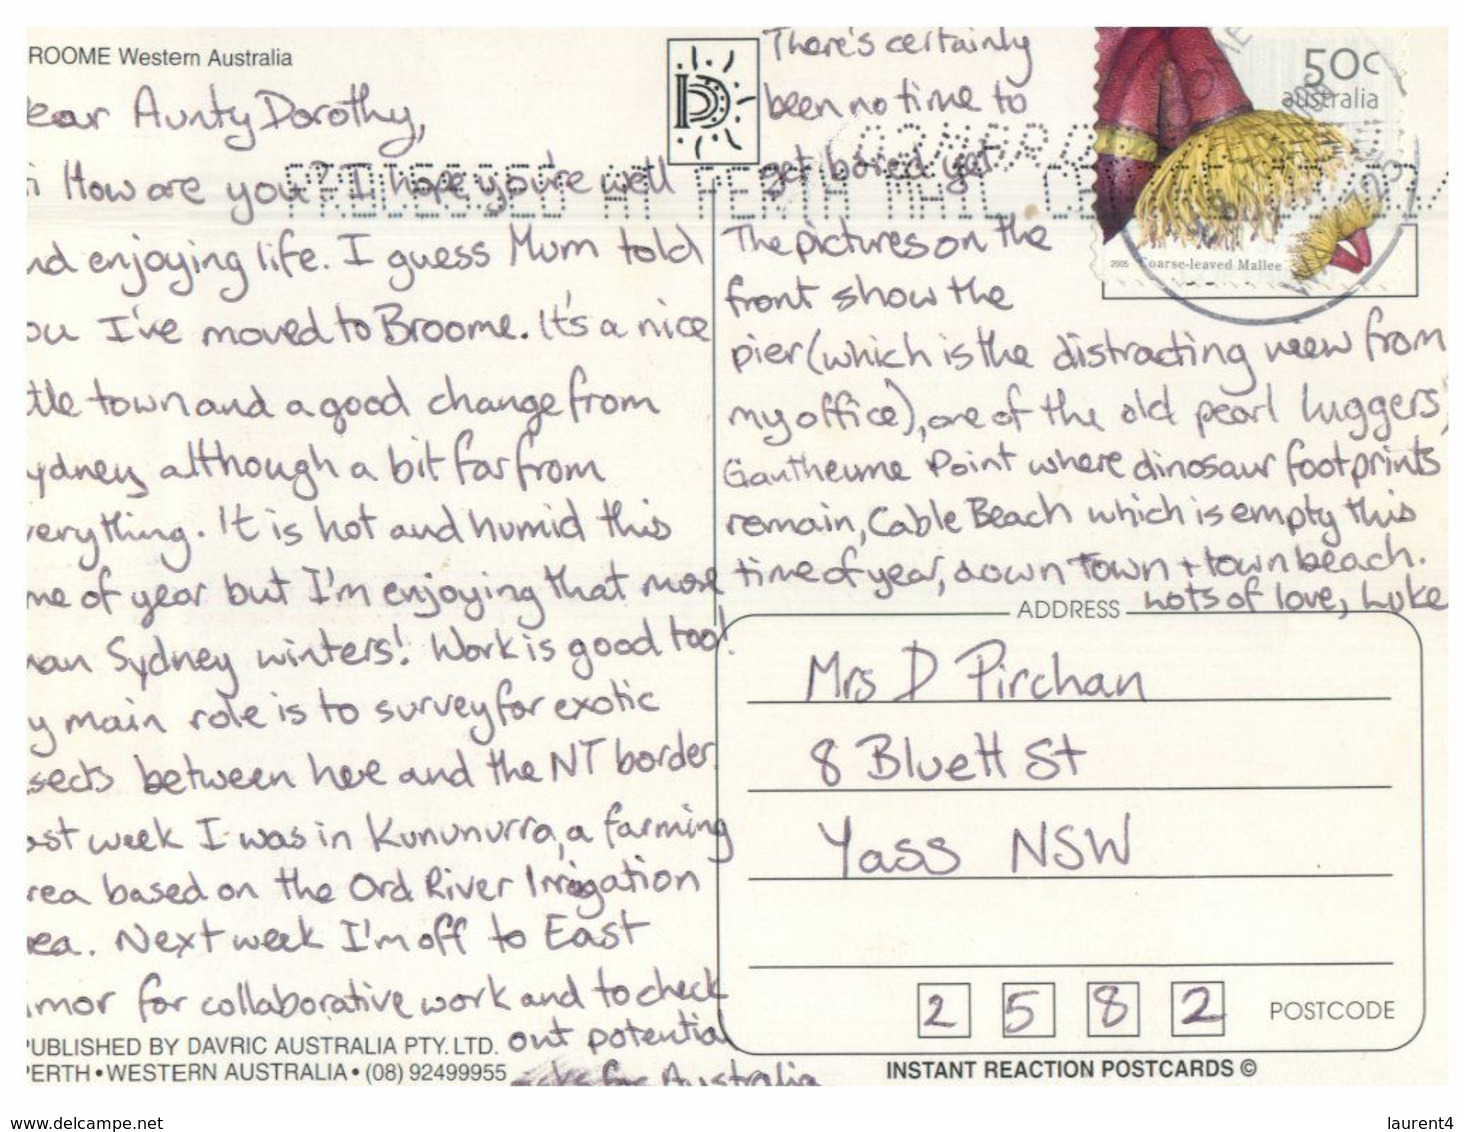 ROOME Western Australia
ear Aunty Dorothy,
i How are you? I hope you're well
nd enjoying life. I guess Mum told
ou I've moved to Broome. It's a nice
ttle town and a good change from
ydney although a bit far from
verything. It is hot and humid this
me of year but I'm enjoying that more
han Sydney winters! Work is good too!
y main role is to survey for exotic
sects between here and the NT border.
ast week I was in Kununurra, a farming
rea based on the Ord River Irrigation
rea. Next week I'm off to East
imor for collaborative work and to check
out potential
for Australia
PUBLISHED BY DAVRIC AUSTRALIA PTY. LTD.
PERTH • WESTERN AUSTRALIA • (08) 92499955
There's certainly
been no time to
get bored yet
The pictures on the
front show the
pier (which is the distracting view from
my office), one of the old pearl luggers,
Gantheume Point where dinosaur footprints
remain, Cable Beach which is empty this
time of year, down town + town beach.
Lots of love, Luke
D
50c
australia
2005 Coarse-leaved Mallee
PROCESSED AT PERTH MAIL
ADDRESS
Mrs D Pirchan
8 Bluett St
Yass NSW
2 5 8 2 POSTCODE
INSTANT REACTION POSTCARDS ©
www.delcampe.net
laurent4